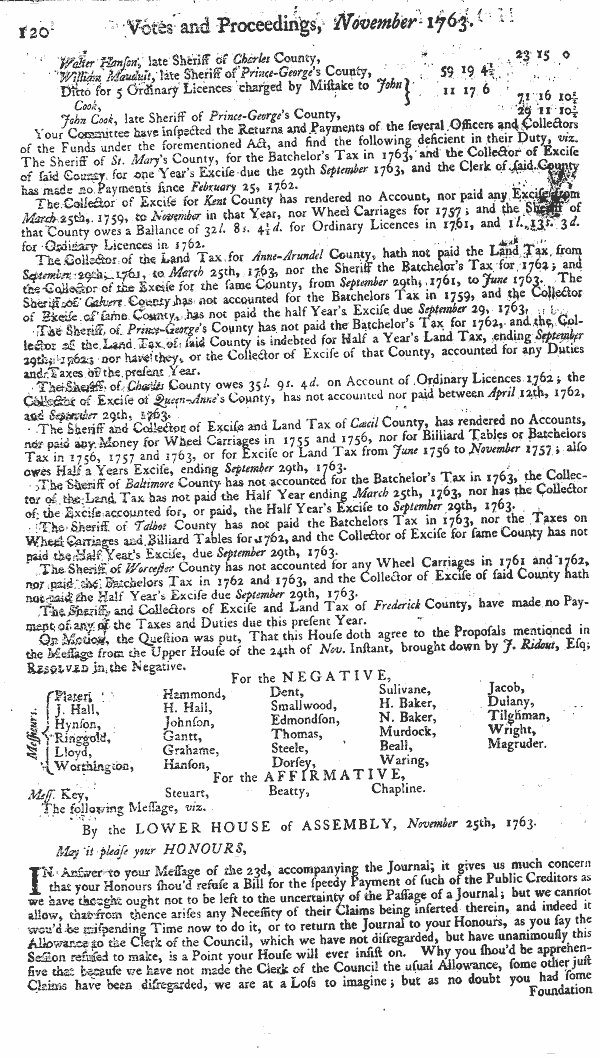 120 Votes and Proceedings, November 1763.
Walter Hanson, late Sheriff of Charles County, 23 15 0
William Mauduit, late Sheriff of Prince-George's County, 59 19 4½
Ditto for 5 Ordinary Licences charged by Mistake to John } 11 17 6
Cook, 71 16 10½
John Cook, late Sheriff of Prince-George's County, 29 11 10½
Your Committee have inspected the Returns and Payments of the several Officers and Collectors
of the Funds under the forementioned Act, and find the following deficient in their Duty, viz.
The Sheriff of St. Mary's County, for the Batchelor's Tax in 1763, and the Collector of Excise
of said County for one Year's Excise due the 29th September 1763, and the Clerk of said County
has made no Payments since February 25, 1762.
The Collector of Excise for Kent County has rendered no Account, nor paid any Excise from
March 25th, 1759, to November in that Year, nor Wheel Carriages for 1757; and the Sheriff of
that County owes a Ballance of 32l. 8s. 4½d. for Ordinary Licences in 1761, and 1l. 13s. 3d.
for Ordinary Licences in 1762.
The Collector of the Land Tax for Anne-Arundel County, hath not paid the Land Tax from
September 29th, 1761, to March 25th, 1763, nor the Sheriff the Batchelor's Tax for 1762; and
the Collector of the Excise for the same County, from September 29th, 1761, to June 1763. The
Sheriff of Calvert County has not accounted for the Batchelors Tax in 1759, and the Collector
of Excise of same County, has not paid the half Year's Excise due September 29, 1763.
The Sheriff of Prince-George's County has not paid the Batchelor's Tax for 1762, and the Col-
lector of the Land Tax of said County is indebted for Half a Year's Land Tax, ending September
29th, 1762; nor have they, or the Collector of Excise of that County, accounted for any Duties
and Taxes of the present Year.
The Sheriff of Charles County owes 35l. 9s. 4d. on Account of Ordinary Licences 1762; the
Collector of Excise of Queen-Anne's County, has not accounted nor paid between April 12th, 1762,
and September 29th, 1763.
The Sheriff and Collector of Excise and Land Tax of Cæcil County, has rendered no Accounts,
nor paid any Money for Wheel Carriages in 1755 and 1756, nor for Billiard Tables or Batchelors
Tax in 1756, 1757 and 1763, or for Excise or Land Tax from June 1756 to November 1757; also
owes Half a Years Excise, ending September 29th, 1763.
The Sheriff of Baltimore County has not accounted for the Batchelor's Tax in 1763, the Collec-
tor of the Land Tax has not paid the Half Year ending March 25th, 1763, nor has the Collector
of the Excise accounted for, or paid, the Half Year's Excise to September 29th, 1763.
The Sheriff of Talbot County has not paid the Batchelors Tax in 1763, nor the Taxes on
Wheel Carriages and Billiard Tables for 1762, and the Collector of Excise for same County has not
paid the Half Year's Excise, due September 29th, 1763.
The Sheriff of Worcester County has not accounted for any Wheel Carriages in 1761 and 1762,
nor paid the Batchelors Tax in 1762 and 1763, and the Collector of Excise of said County hath
not paid the Half Year's Excise due September 29th, 1763.
The Sheriff and Collectors of Excise and Land Tax of Frederick County, have made no Pay-
ment of any of the Taxes and Duties due this present Year.
On Motion, the Question was put, That this House doth agree to the Proposals mentioned in
the Message from the Upper House of the 24th of Nov. Instant, brought down by J. Ridout, Esq;
RESOLVED in the Negative.
For the NEGATIVE,
Messieurs.
Plater, Hammond, Dent, Sulivane, Jacob,
J. Hall, H. Hall, Smallwood, H. Baker, Dulany,
Hynson, Johnson, Edmondson, N. Baker, Tilghman,
Ringgold, Gantt, Thomas, Murdock, Wright,
Lloyd, Grahame, Steele, Beall, Magruder.
Worthington, Hanson, Dorsey, Waring,
For the AFFIRMATIVE,
Mess. Key, Steuart, Beatty, Chapline.
The following Message, viz.
By the LOWER HOUSE of ASSEMBLY, November 25th, 1763.
May it please your HONOURS,
IN Answer to your Message of the 23d, accompanying the Journal; it gives us much concern
that your Honours shou'd refuse a Bill for the speedy Payment of such of the Public Creditors as
we have thought ought not to be left to the uncertainty of the Passage of a Journal; but we cannot
allow, that from thence arises any Necessity of their Claims being inserted therein, and indeed it
wou'd be mispending Time now to do it, or to return the Journal to your Honours, as you say the
Allowance to the Clerk of the Council, which we have not disregarded, but have unanimously this
Session refused to make, is a Point your House will ever insist on. Why you shou'd be apprehen-
sive that because we have not made the Clerk of the Council the usual Allowance, some other just
Claims have been disregarded, we are at a Loss to imagine; but as no doubt you had some
Foundation